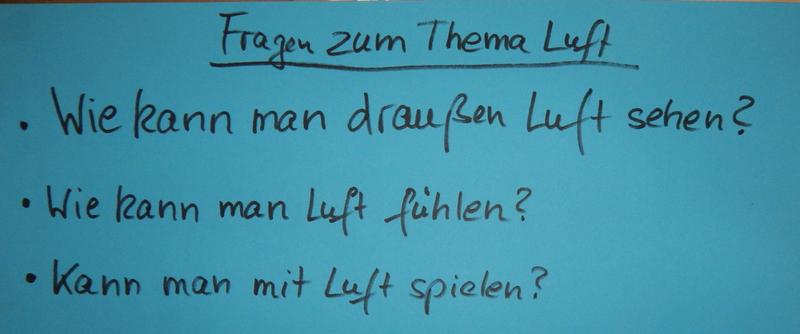 Fragen zum Thema Luft
• Wie kann man draußen Luft sehen?
• Wie kann man Luft fühlen?
• Kann man mit Luft spielen?